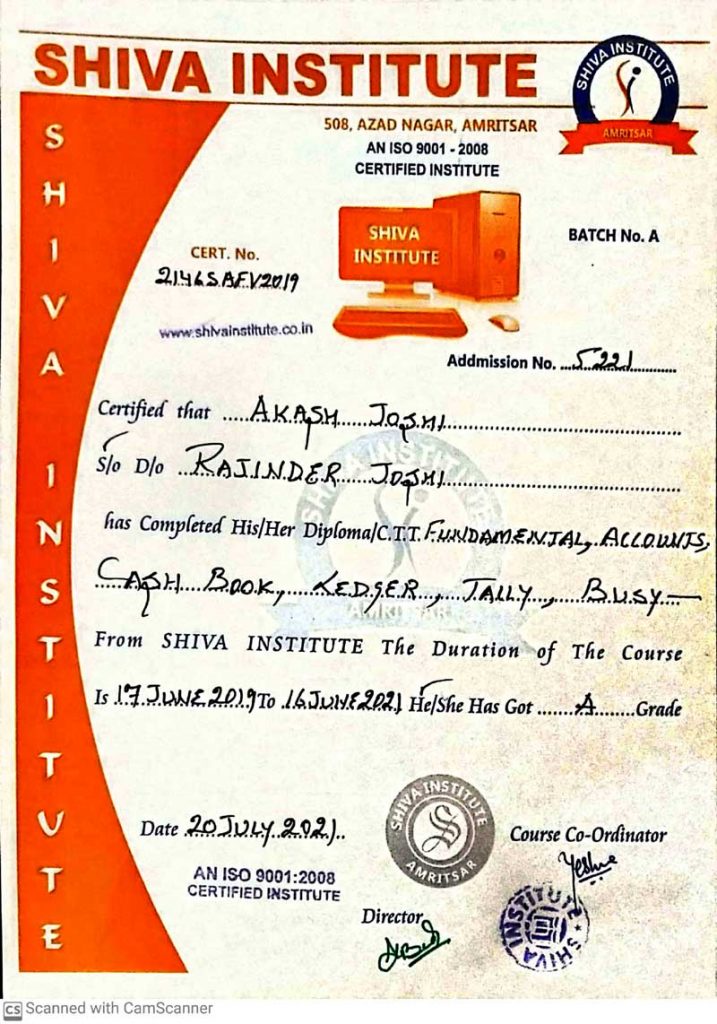 SHIVA INSTITUTE
SHIVA INSTITUTE
AMRITSAR
508, AZAD NAGAR, AMRITSAR
AN ISO 9001 - 2008
CERTIFIED INSTITUTE
SHIVA INSTITUTE
SHIVA
INSTITUTE
BATCH No. A
CERT. No.
2146SAFV2019
www.shivainstitute.co.in
Addmission No. 5221
Certified that AKASH JOSHI
S/o D/o RAJINDER JOSHI
has Completed His/Her Diploma/C.T.T. FUNDAMENTAL, ACCOUNTS,
CASH BOOK, LEDGER, TALLY, BUSY
From SHIVA INSTITUTE The Duration of The Course
Is 17 JUNE 2019 To 16 JUNE 2021 He/She Has Got A Grade
SHIVA INSTITUTE
AMRITSAR
Date 20 JULY 2021
SHIVA INSTITUTE
AMRITSAR
Course Co-Ordinator
AN ISO 9001:2008
CERTIFIED INSTITUTE
Director
SHIVA INSTITUTE
CS Scanned with CamScanner